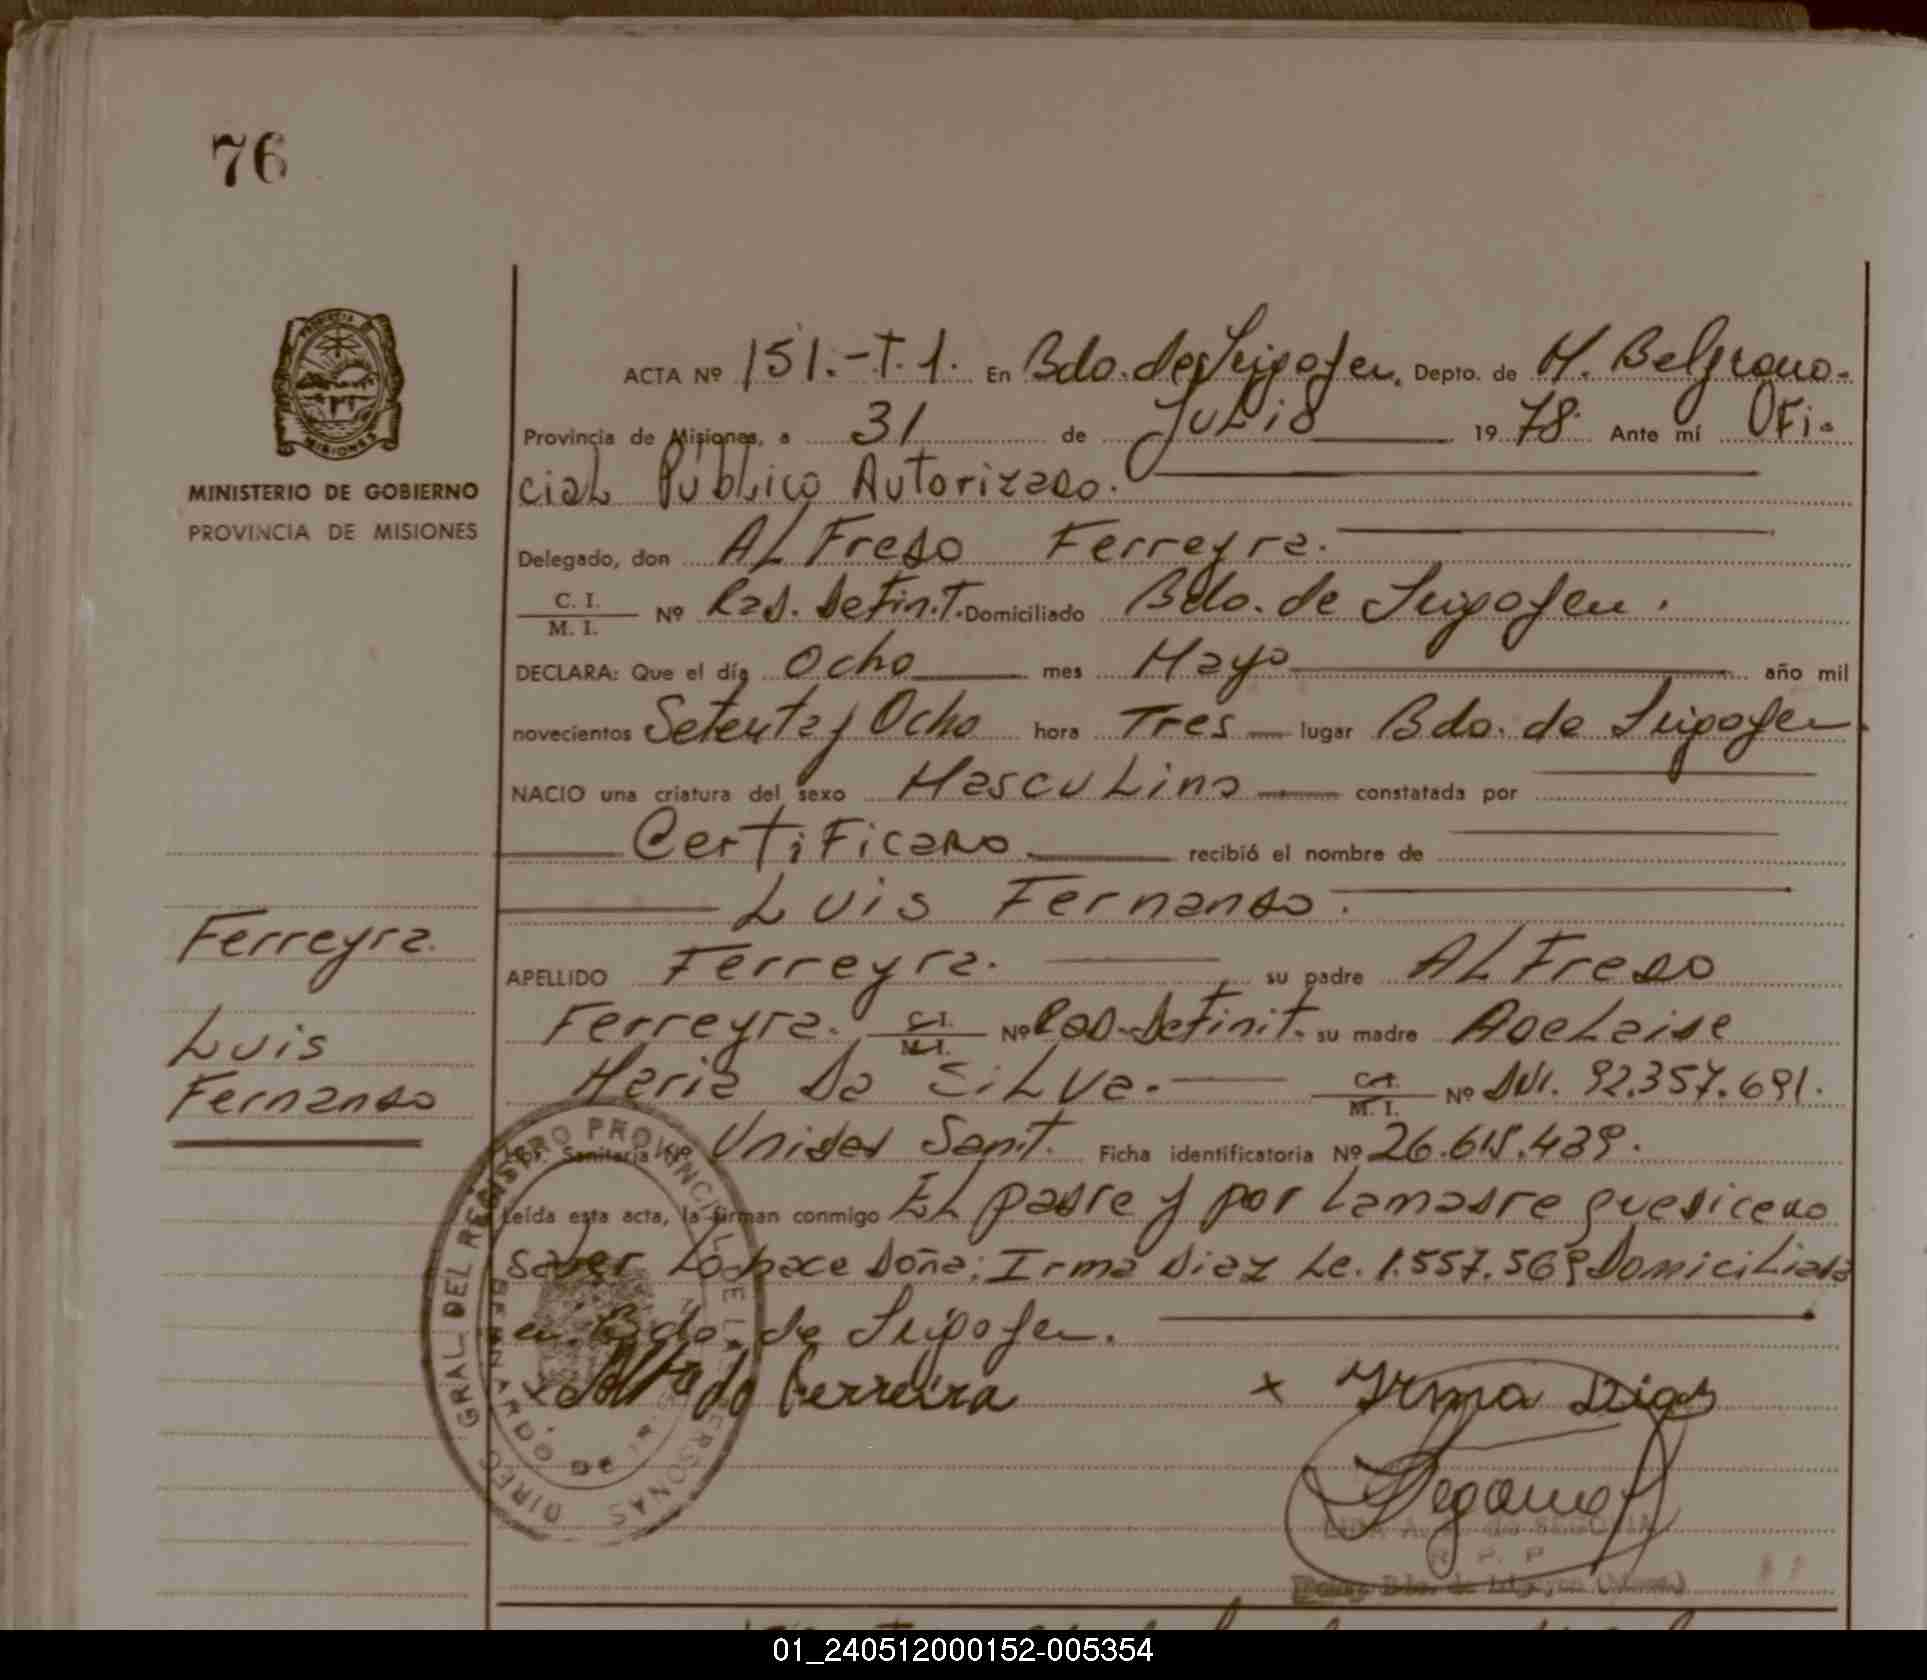 76
MINISTERIO DE GOBIERNO
PROVINCIA DE MISIONES
ACTA Nº 151.-T.1. En Bdo. de Irigoyen, Depto. de M. Belgrano.
Provincia de Misiones, a 31 de Julio 1978. Ante mí Ofi-
cial Público Autorizado.
Delegado, don Alfredo Ferreyra.
C. I. / M. I. Nº Rad. Definit. Domiciliado Bdo. de Irigoyen.
DECLARA: Que el día Ocho mes Mayo año mil
novecientos Setenta y Ocho hora Tres lugar Bdo. de Irigoyen
NACIO una criatura del sexo Masculino constatada por
Certificado recibió el nombre de
Luis Fernando.
APELLIDO Ferreyra. su padre Alfredo
Ferreyra. C.I. / M.I. Nº Rad. Definit. su madre Adelaide
Maria Da Silva. C.I. / M. I. Nº DNI. 92.357.691.
Lib. Sanitaria Nº Unidad Sanit. Ficha identificatoria Nº 26.615.439.
Leída esta acta, la firman conmigo El padre y por la madre que dice no
saber lo hace Doña: Irma Diaz Le. 1.557.569 Domiciliada
en Bdo. de Irigoyen.
Ferreira x Irma Diaz
Ferreyra.
Luis
Fernando
DIREC. GRAL. DEL REGISTRO PROVINCIAL DE LAS PERSONAS
BERNARDO DE
SEGOVIA
R. P. P.
Bdo. de Irigoyen (Mnes.)
01_240512000152-005354